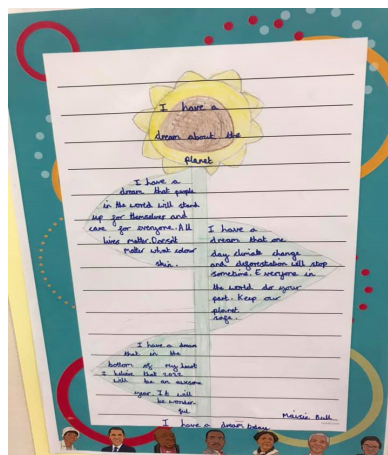 I have a
dream about the
planet
I have a
dream that people
in the world will stand
up for themselves and
care for everyone. All
lives matter. Dosn't
matter what colour
skin.
I have a
dream that one
day climate change
and deforestation will stop
sometime. Everyone in
the world do your
part. Keep our
planet
safe.
I have a dream
that in the
bottom of my heart
I believe that 2022
will be an awesome
year. It will
be wonder
ful
Maisie Bull
I have a dream today